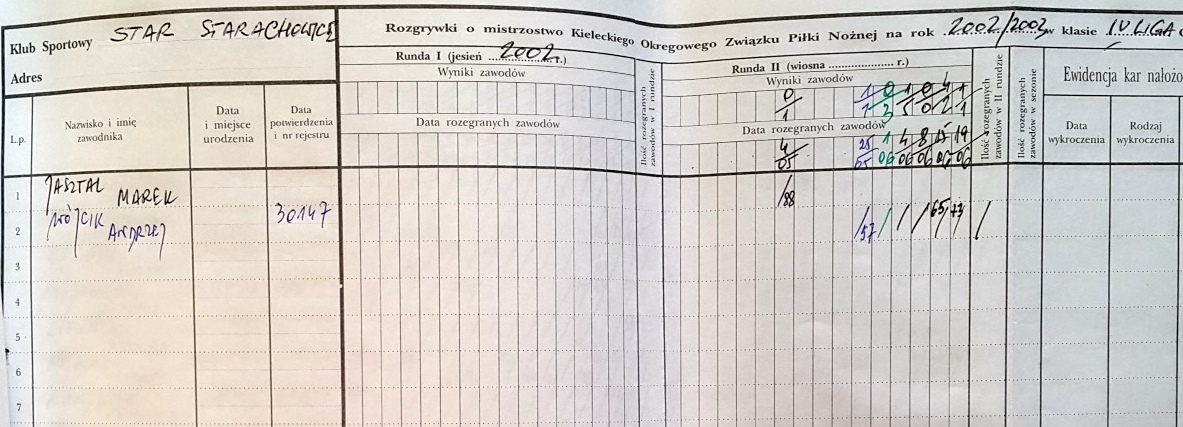 Klub Sportowy STAR STARACHOWICE
Adres
Rozgrywki o mistrzostwo Kieleckiego Okręgowego Związku Piłki Nożnej na rok 2002/2002 w klasie IV LIGA
Runda I (jesień 2002 r.)
Wyniki zawodów
Data rozegranych zawodów
Ilość rozegranych zawodów w I rundzie
Runda II (wiosna .................... r.)
Wyniki zawodów
0 1 0 1 0 4 1
1 1 3 5 0 2 1
Data rozegranych zawodów
4 25 1 4 8 15 19
05 05 06 06 06 06 06
Ilość rozegranych zawodów w II rundzie
Ilość rozegranych zawodów w sezonie
Ewidencja kar nałożo
Data wykroczenia
Rodzaj wykroczenia
L.p.
Nazwisko i imię zawodnika
Data i miejsce urodzenia
Data potwierdzenia i nr rejestru
1 JASZTAL MAREK /88
2 WÓJCIK ANDRZEJ 30147 /57 / / / 65/ 73 /
3
4
5
6
7